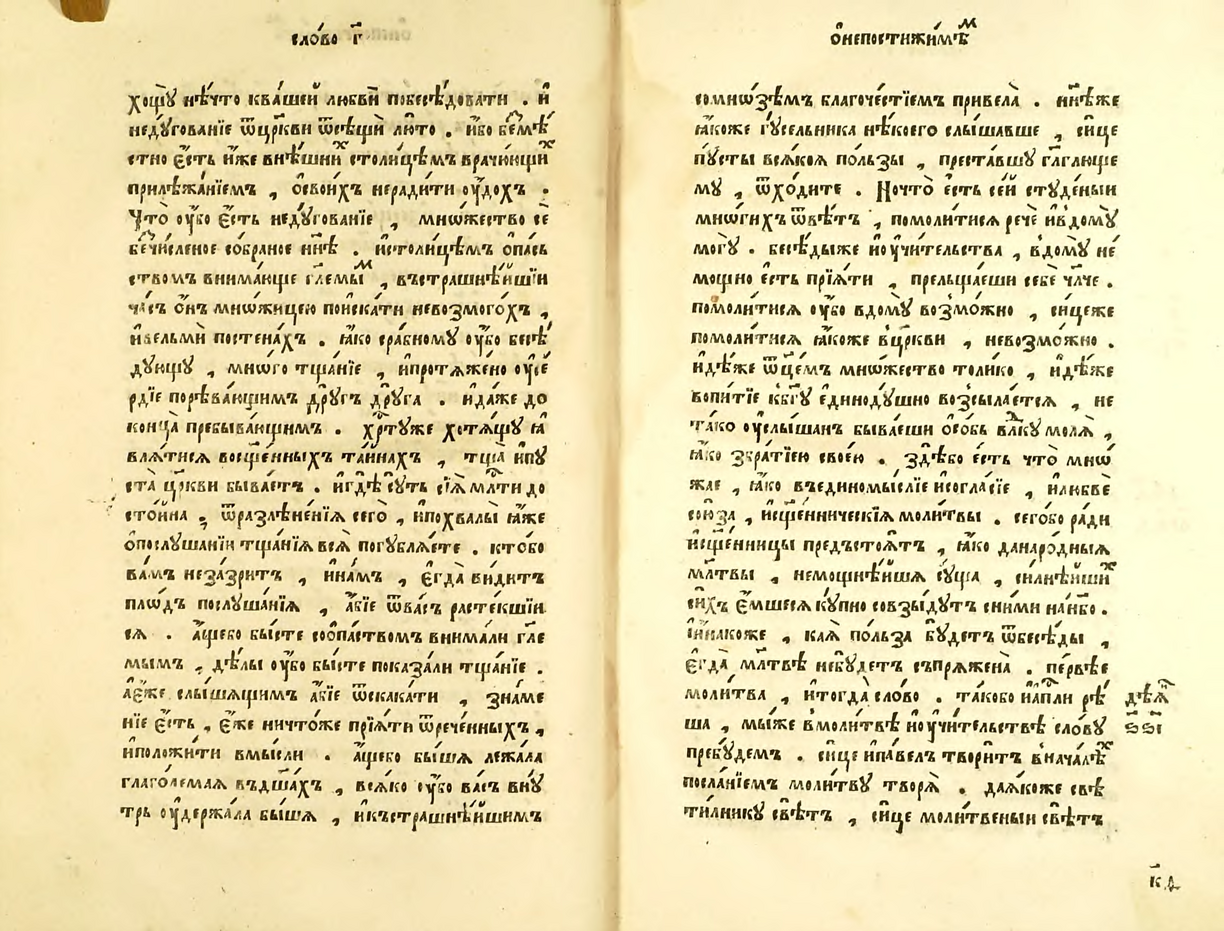 сло́во г҃
хощꙋ̀ нѣ́что квашей любвѝ побесѣ́довати . и҆
недꙋ́гованїе ѿцр҃кви ѿсѣ́щи лю́то . и҆́бо
стно є҆́сть и҆́же внѣ́шниⷯ столи́цѣмъ врачю́ющиⷯ
прилѣжа́нїемъ , о҆свои́хъ неради́ти ᲂу҆́дохъ :
Что̀ ᲂу҆́бо є҆́сть недꙋ́гованїе , мнѡ́жество се
бе́численое со́браное нн҃ѣ . и҆столи́цѣмъ ѻ҆па́сь
ствомъ внима́юще гл҃емыⷨ , въстрашнѣ́йшїи
ча́съ ѻ҆́нъ мнѡ́жицею поиска́ти невозмого́хъ ,
и҆вельмѝ постена́хъ . ꙗ҆́ко сра́бномꙋ ᲂу҆́бо бесѣ́
дꙋющꙋ , мнѡ́го тща́нїе , и҆протѧ́жено ᲂу҆се́
рдїе порѣва́ющимъ дрꙋ́гъ дрꙋ́га . и҆да́же до
конца̀ пребыва́ющимъ . хрⷭ҇тꙋ́же хотѧ́щꙋ ꙗ҆
влѧ́тисѧ восщ҃е́нныхъ та́йнахъ , тща̀ и҆пꙋ
ста̀ цр҃кви быва́етъ . и҆гдѣ̀ сꙋ́ть сїѧ̀ млⷭ҇ти до
сто́йна , ѿразлѣне́нїѧ сегѡ̀ , и҆похвалы̀ ꙗ҆́же
ѻ҆послꙋша́нїи тща́нїѧ всѧ̀ погꙋблѧ́ете . кто́бо
ва́мъ незазри́тъ , и҆на́мъ , є҆гда̀ ви́дитъ
пло́дъ послꙋша́нїѧ , а҆́бїе ѿва́съ расте́кшїи
сѧ . а҆́щебо бы́сте соо҆па́ствомъ внима́ли гл҃е
мымъ , дѣ́лы ᲂу҆́бо бы́сте показа́ли тща́нїе .
а҆є҆́же слы́шѧщимъ а҆́бїе ѿскака́ти , зна́ме
нїе є҆́сть , є҆́же ничто́же прїѧ́ти ѿрече́нныхъ ,
и҆положи́ти вмы́сли . а҆́щебо бы́шѧ лежа́ла
глаго́лемаѧ въдш҃а́хъ , всѧ́ко ᲂу҆́бо ва́съ внꙋ́
трь ᲂу҆держа́ла бы́шѧ , и҆къстрашнѣ́йшимъ
ѻ҆непостижи́мѣⷨ
сомнѡ́зѣмъ благоче́стїемъ привела̀ . нн҃ѣже
ꙗ҆́коже гꙋсе́льника нѣ́коего слы́шавше , си́це
пꙋ́сты всѧ́коѧ по́льзы , преста́вшꙋ гл҃го́люще
мꙋ , ѿхо́дите . Ночто̀ є҆́сть се́й стꙋде́ныи
мнѡ́гихъ ѿвѣ́тъ , помоли́тисѧ речѐ и҆вдомꙋ̀
могꙋ̀ . бесѣ́дыже и҆ᲂу҆чи́тельства , вдомꙋ̀ не
мо́щно є҆́сть прїѧ́ти , прельща́еши себѐ чл҃че .
помоли́тисѧ ᲂу҆́бо вдомꙋ̀ возмо́жно , си́цеже
помоли́тисѧ ꙗ҆́коже вцр҃кви , невозмо́жно .
и҆дѣ́же ѿцє́мъ мно́жество толи́ко , и҆дѣ́же
вопи́тїе кбг҃ꙋ є҆диноду́шно возсыла́етсѧ , не
та́ко ᲂу҆слы́шанъ быва́еши ѻ҆со́бь влⷣкꙋ молѧ̀ ,
ꙗ҆́ко збра́тїею свое́ю . здѣ́бо є҆́сть что̀ мнѡ́
жае , ꙗ҆́ко въединомы́слїе и҆согла́сїе , и҆любвѐ
сою́за , и҆сщ҃е́нническїѧ моли́твы . сего́бо ра́ди
и҆сщ҃е́нницы предъстоѧ́тъ , ꙗ҆́ко данаро́дныѧ
мл҃твы , немощнѣ́йшѧ сꙋ́ща , силнѣ́йшиⷯ
си́хъ є҆́мшесѧ кꙋ́пно совзы́дꙋтъ сни́ми нан҃бо .
и҆и҆на́коже , ка́ѧ по́льза бꙋ́детъ ѿбесѣ́ды ,
є҆гда̀ мл҃твѣ небꙋ́детъ съпрѧже́на . пе́рвѣе
моли́тва , и҆тогда̀ сло́во . та́кобо и҆а҆пⷭ҇ли рѣ́
ша , мы́же вмоли́твѣ и҆ᲂу҆чи́тельствѣ сло́вꙋ
пребꙋ́демъ . си́це и҆па́велъ твори́тъ внача́лѣⷯ
посла́нїемъ моли́твꙋ творѧ̀ . даꙗ҆́коже свѣ
ти́лникꙋ свѣ́тъ , си́це моли́твеныи свѣ́тъ
дѣѧⷩ҇
к҃д